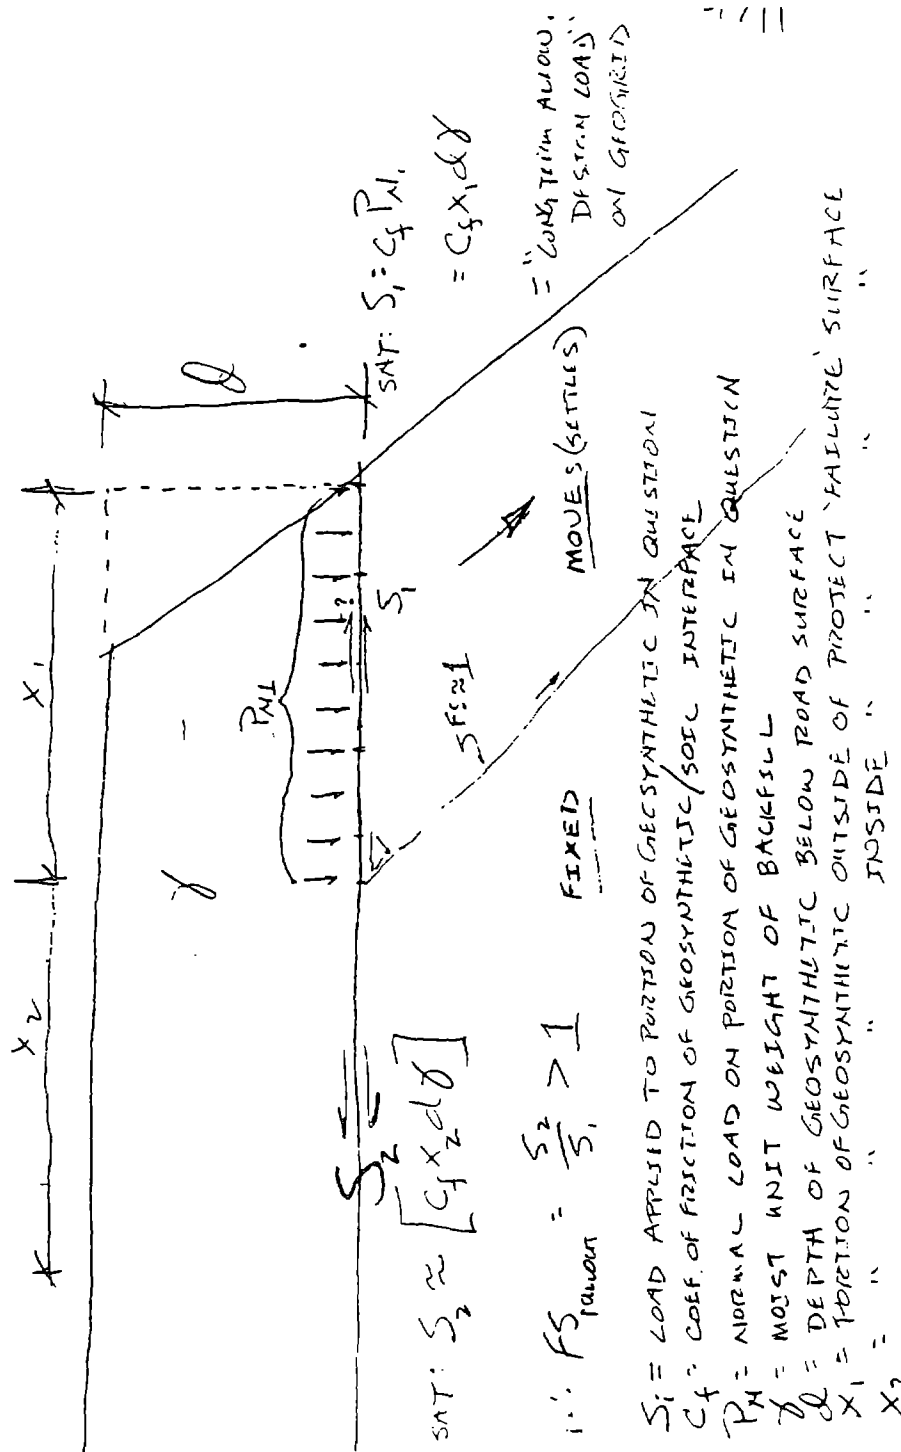 X₂ X₁
γ
d
P_N1
SAT: S₁ = C_f P_N1
= C_f X₁ d γ
= "LONG TERM ALLOW.
DESIGN LOAD"
ON GEOGRID
?
S₁
S₂
SAT: S₂ ≈ [C_f X₂ d γ]
FS≈1
FIXED
MOVES (SETTLES)
∴ FS = S₂/S₁ > 1
Sᵢ = LOAD APPLIED TO PORTION OF GEOSYNTHETIC IN QUESTION
C_f = COEF. OF FRICTION OF GEOSYNTHETIC/SOIL INTERFACE
P_N = NORMAL LOAD ON PORTION OF GEOSYNTHETIC IN QUESTION
γ = MOIST UNIT WEIGHT OF BACKFILL
d = DEPTH OF GEOSYNTHETIC BELOW ROAD SURFACE
X₁ = PORTION OF GEOSYNTHETIC OUTSIDE OF PROJECT 'FAILURE' SURFACE
X₂ = " " " INSIDE " " " "